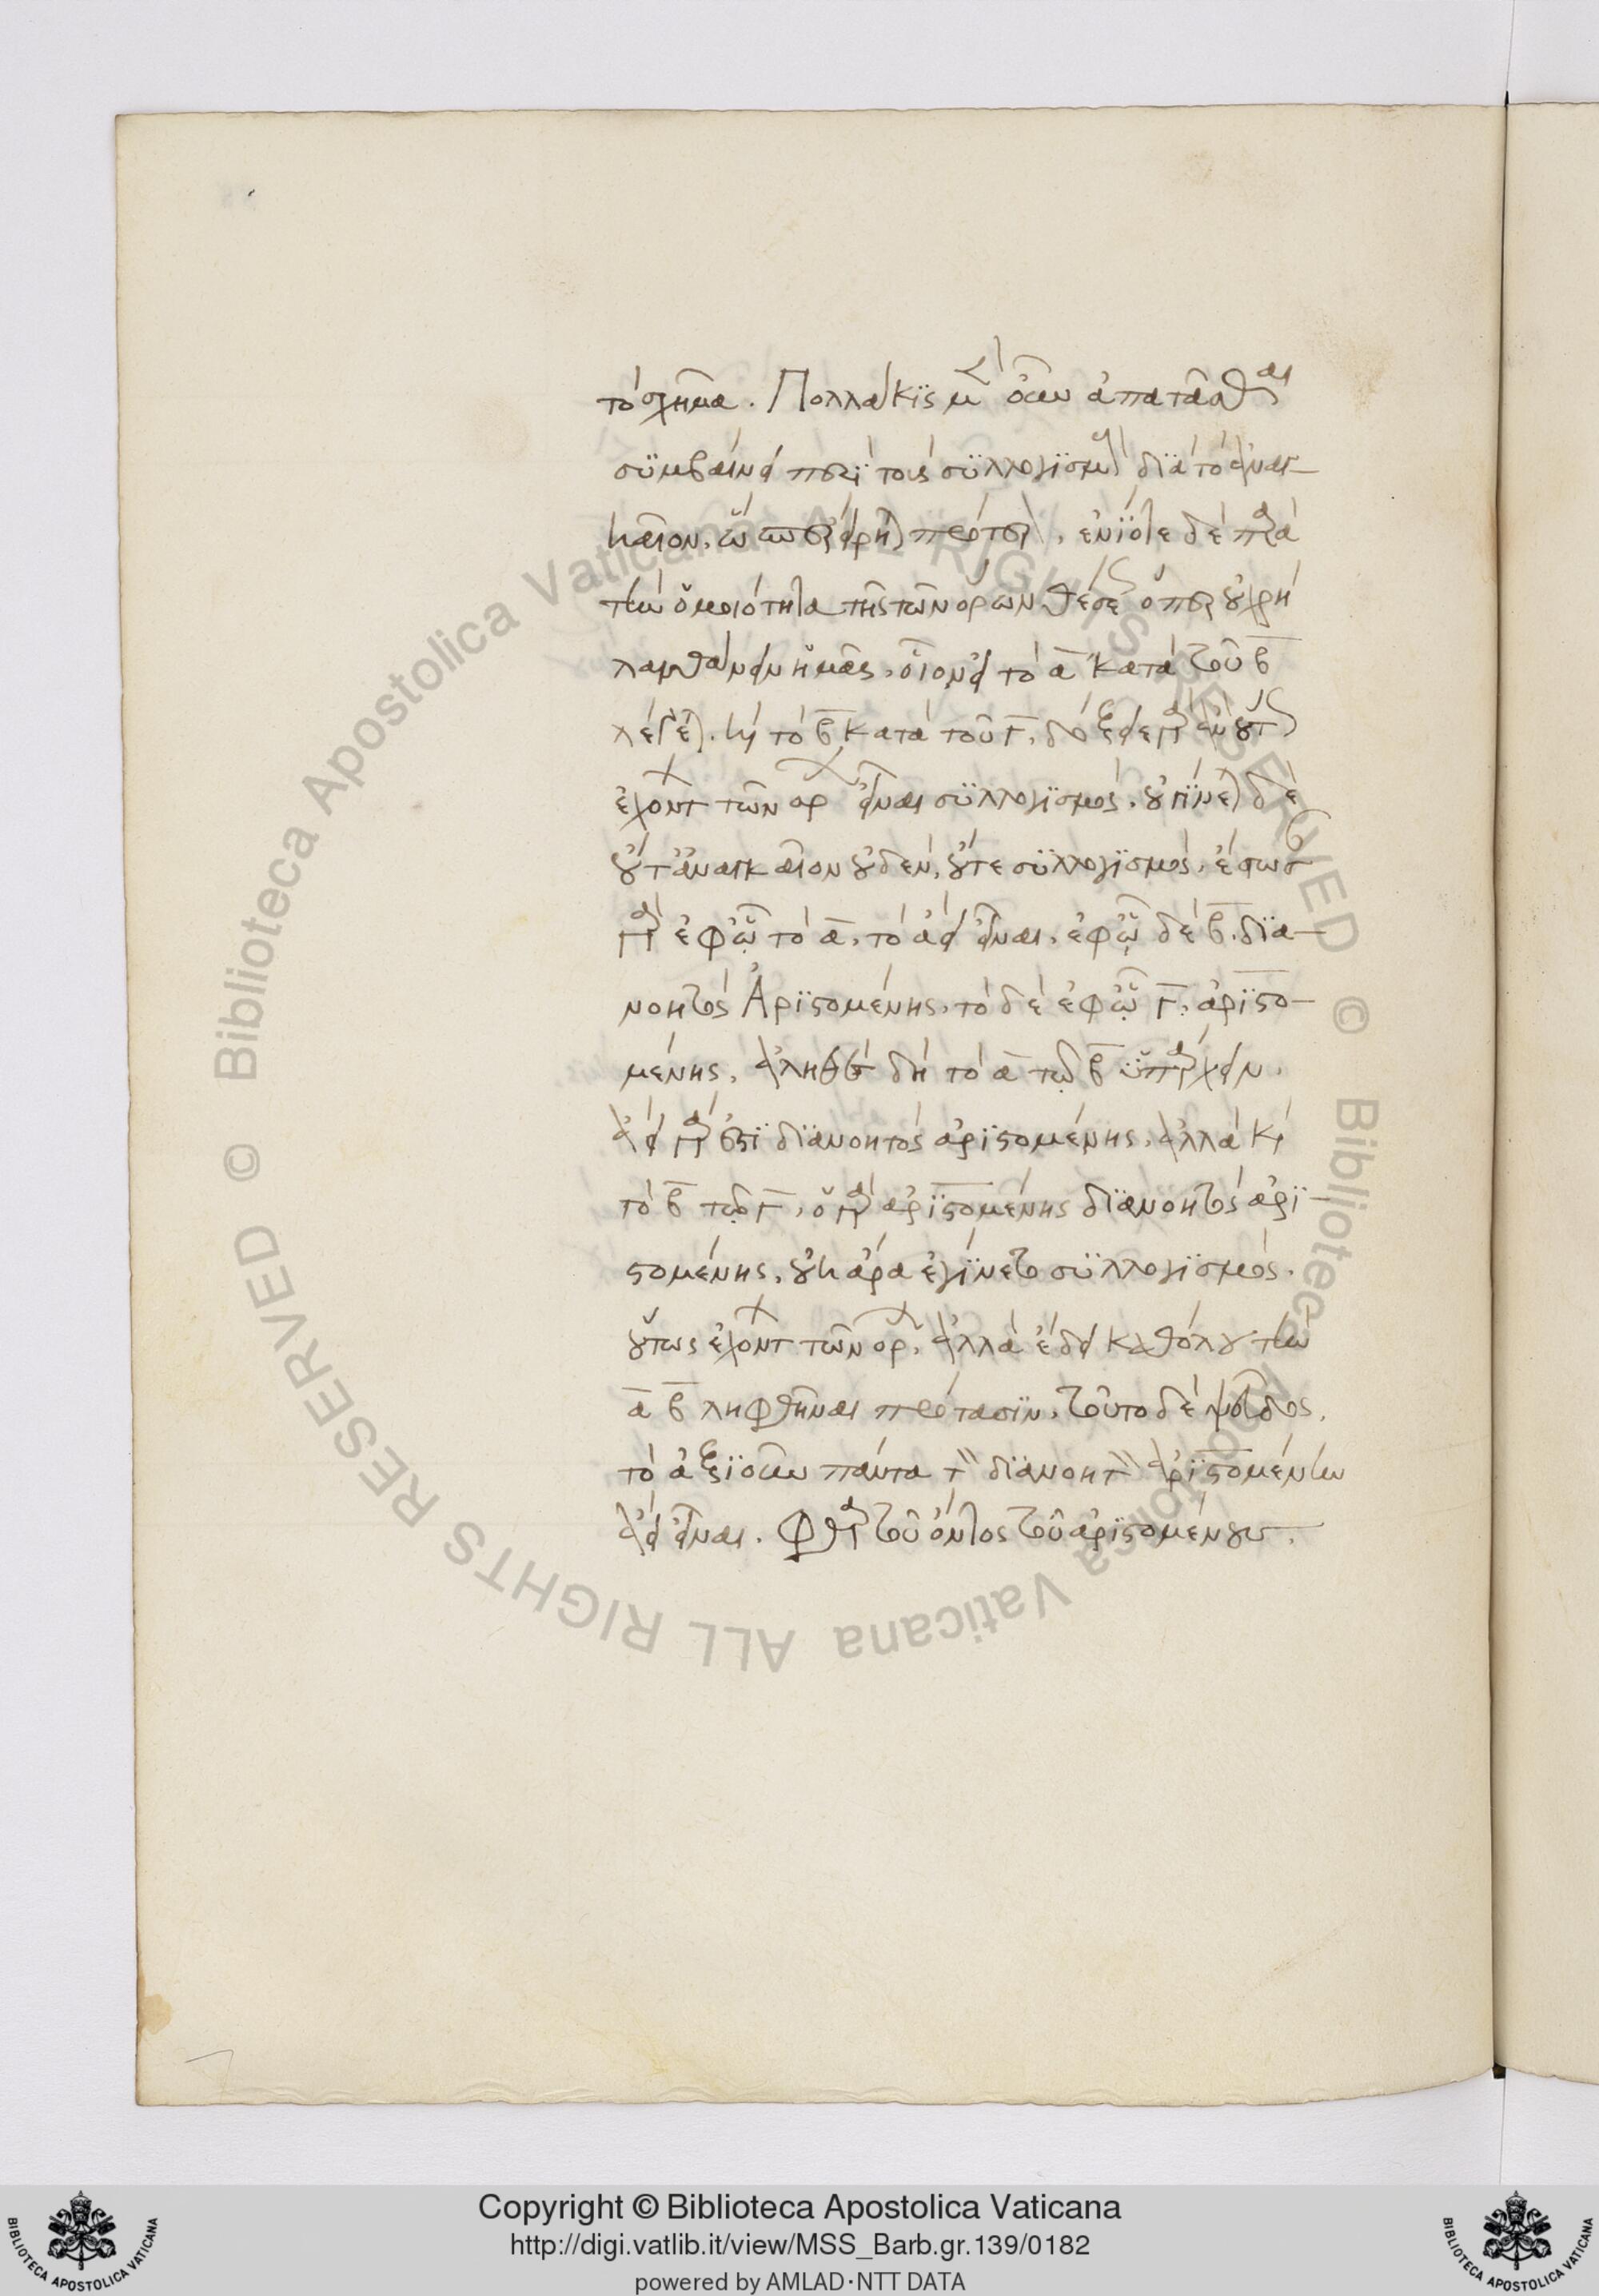 τὸ σχῆμα. Πολλάκϊς μὲν οὖν ἀπατᾶσθαι
σϋμβαίνει περὶ τοὺς σϋλλογϊσμοὺς δϊὰ τὸ ἀναγ-
καῖον, ὥσπερ εἴρηται πρότερον, ἐνϊότε δὲ παρὰ
τὴν ὁμοιότητα τῆς τῶν ὅρων θέσεως ὅπερ οὐ χρὴ
λανθάνειν ἡμᾶς, οἷον εἰ τὸ α κατὰ τοῦ β
λέγεται. καὶ τὸ β κατὰ τοῦ Γ, δόξειε γὰρ ἂν οὕτως
ἐχόντων τῶν ὅρων εἶναι σϋλλογϊσμός, οὐ γϊνεται δὲ
οὔτ' ἀναγκαῖον οὐδὲν, οὔτε σϋλλογϊσμός, ἔστω
γὰρ ἐφ ᾧ τὸ α, τὸ ἀεὶ εἶναι, ἐφ ᾧ δὲ β, δϊα-
νοητὸς Ἀρϊστομένης, τὸ δὲ ἐφ ᾧ Γ, ἀρϊστο-
μένης, ἀληθὲς δὴ τὸ α τῷ β ὑπάρχειν,
ἀεὶ γάρ ἐστϊ δϊανοητὸς ἀρϊστομένης, ἀλλὰ καὶ
τὸ β τῷ Γ, ὁ γὰρ ἀρϊστομένης δϊανοητὸς ἀρϊ-
στομένης, οὐκ ἄρα ἐγϊνετο σϋλλογϊσμὸς.
οὕτως ἐχόντων τῶν ὅρων, ἀλλὰ ἔδει καθόλου τὴν
α β ληφθῆναι πρότασϊν, τοῦτο δὲ ψεῦδος,
τὸ ἀξϊοῦν πάντα τὸν δϊανοητὸν ἀρϊστομένην
ἀεὶ εἶναι. Φθαρτοῦ ὄντος τοῦ ἀρϊστομένους.
Copyright © Biblioteca Apostolica Vaticana
http://digi.vatlib.it/view/MSS_Barb.gr.139/0182
powered by AMLAD·NTT DATA